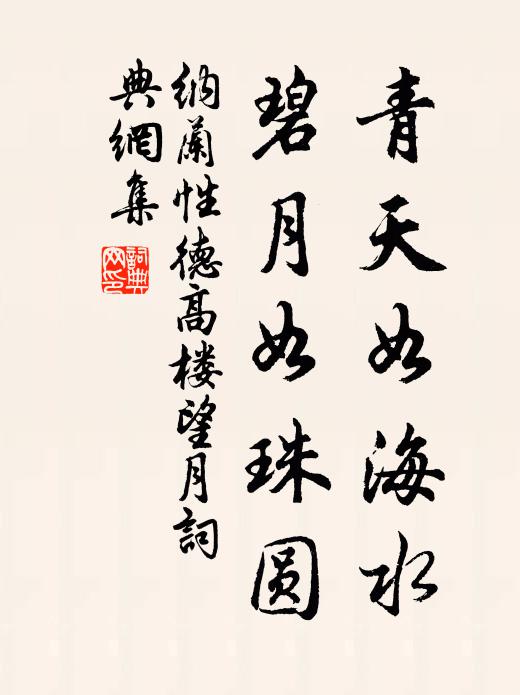 青天如海水
碧月如珠圓
納蘭性德高楼望月詞
典網集
詞典
网印